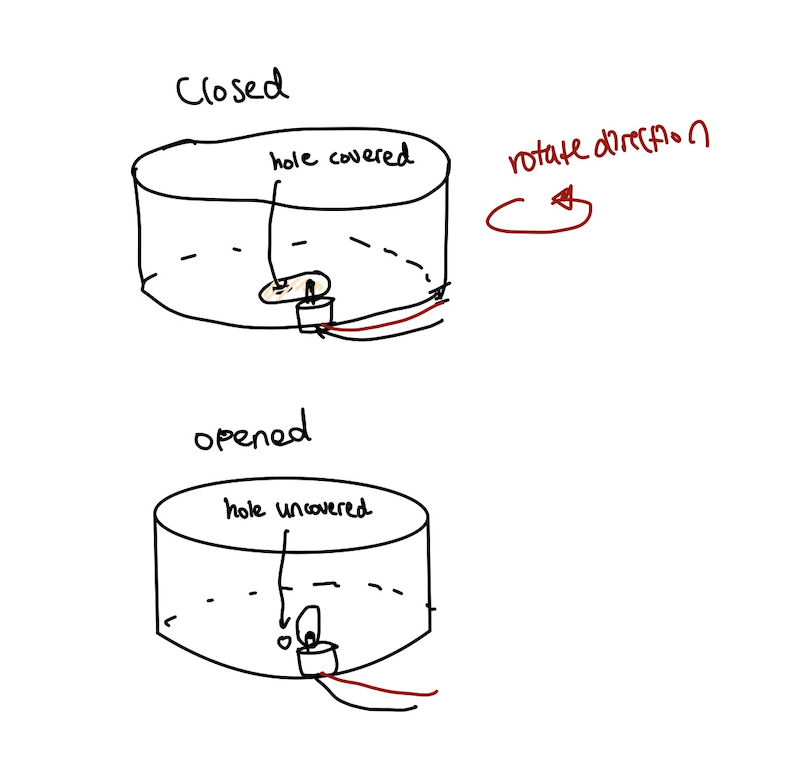 Closed
hole covered
rotate direction
opened
hole uncovered